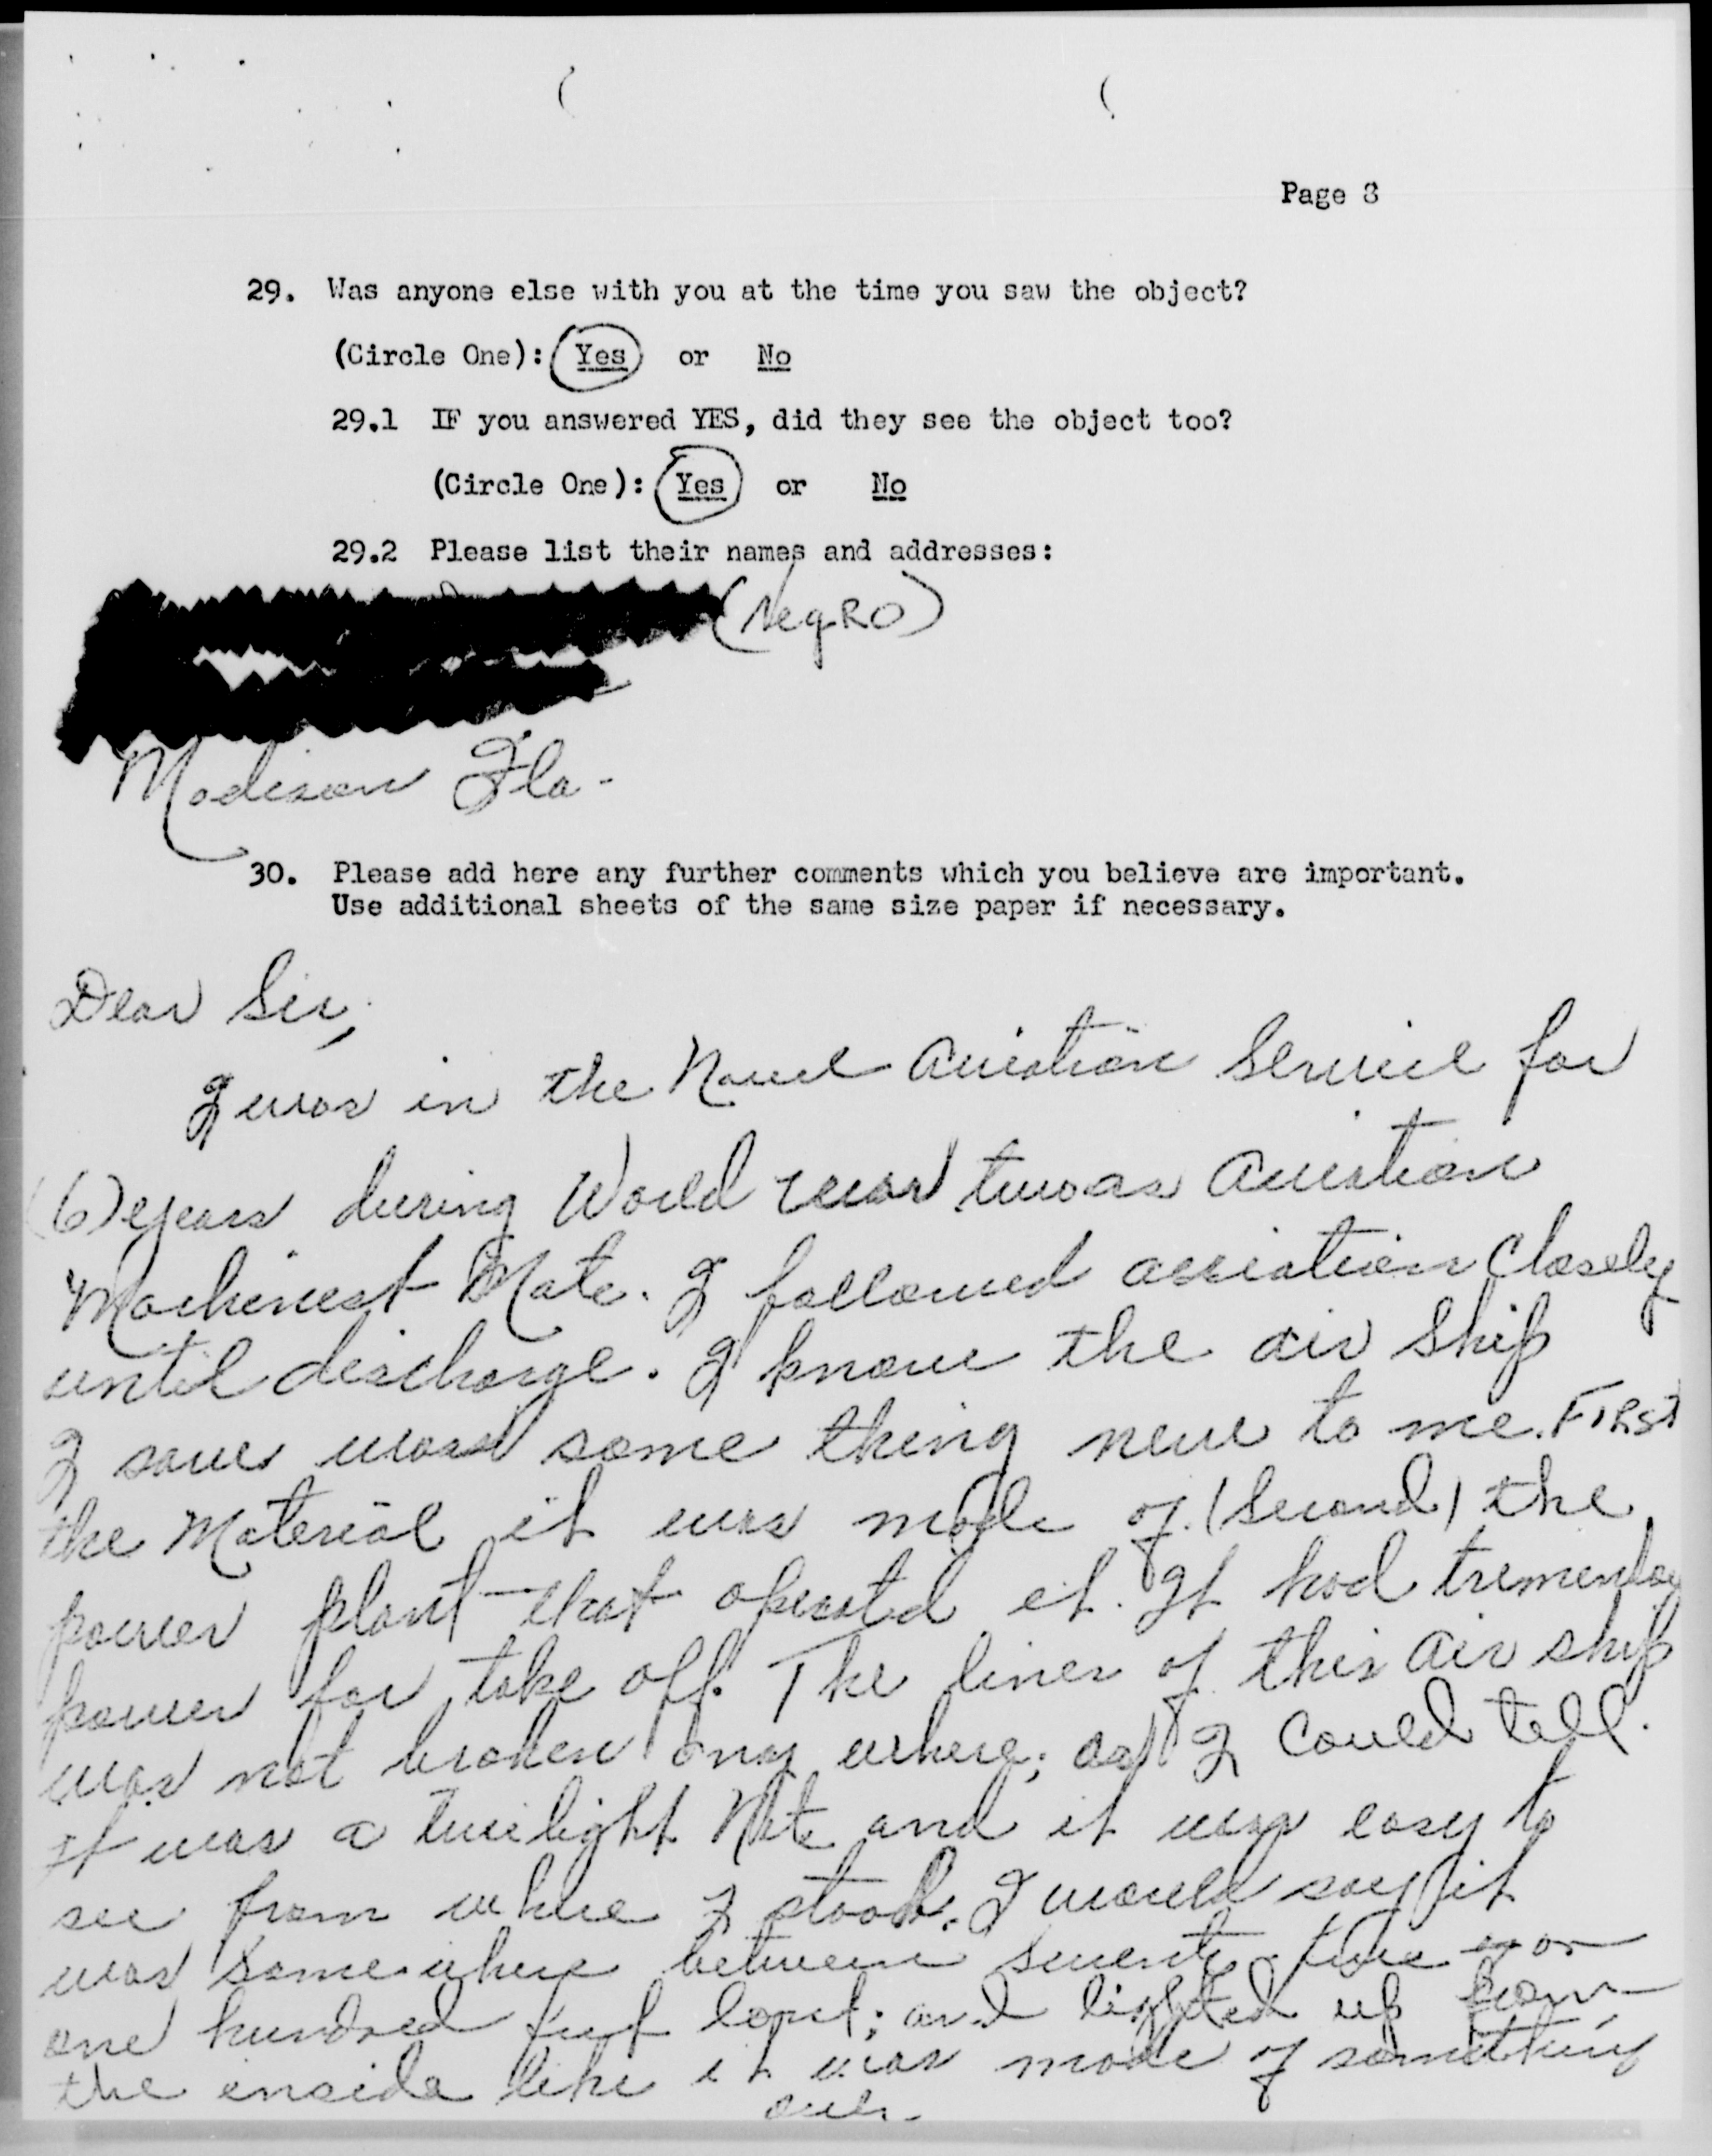 Page 8
29. Was anyone else with you at the time you saw the object?
(Circle One): Yes or No
29.1 IF you answered YES, did they see the object too?
(Circle One): Yes or No
29.2 Please list their names and addresses:
(NegRO)
Madison Fla-
30. Please add here any further comments which you believe are important.
Use additional sheets of the same size paper if necessary.
Dear Sir,
I was in the Navel Aviation Service for
(6) years during World war two as Aviation
Machinest Mate. I followed aviation Closely
until discharge. I know the air Ship
I saw was some thing new to me. FIRST
the Material it was made of. (Second) the
power plant that operated it. It had
power for take off. The lines of this Air ship
was not broken any where; as I Could tell.
It was a twilight Nite and it was easy to
see from where I stood. I would say it
was some where between seventy five or
one hundred feet long; and lighted up from
the inside like it was made of something
over-